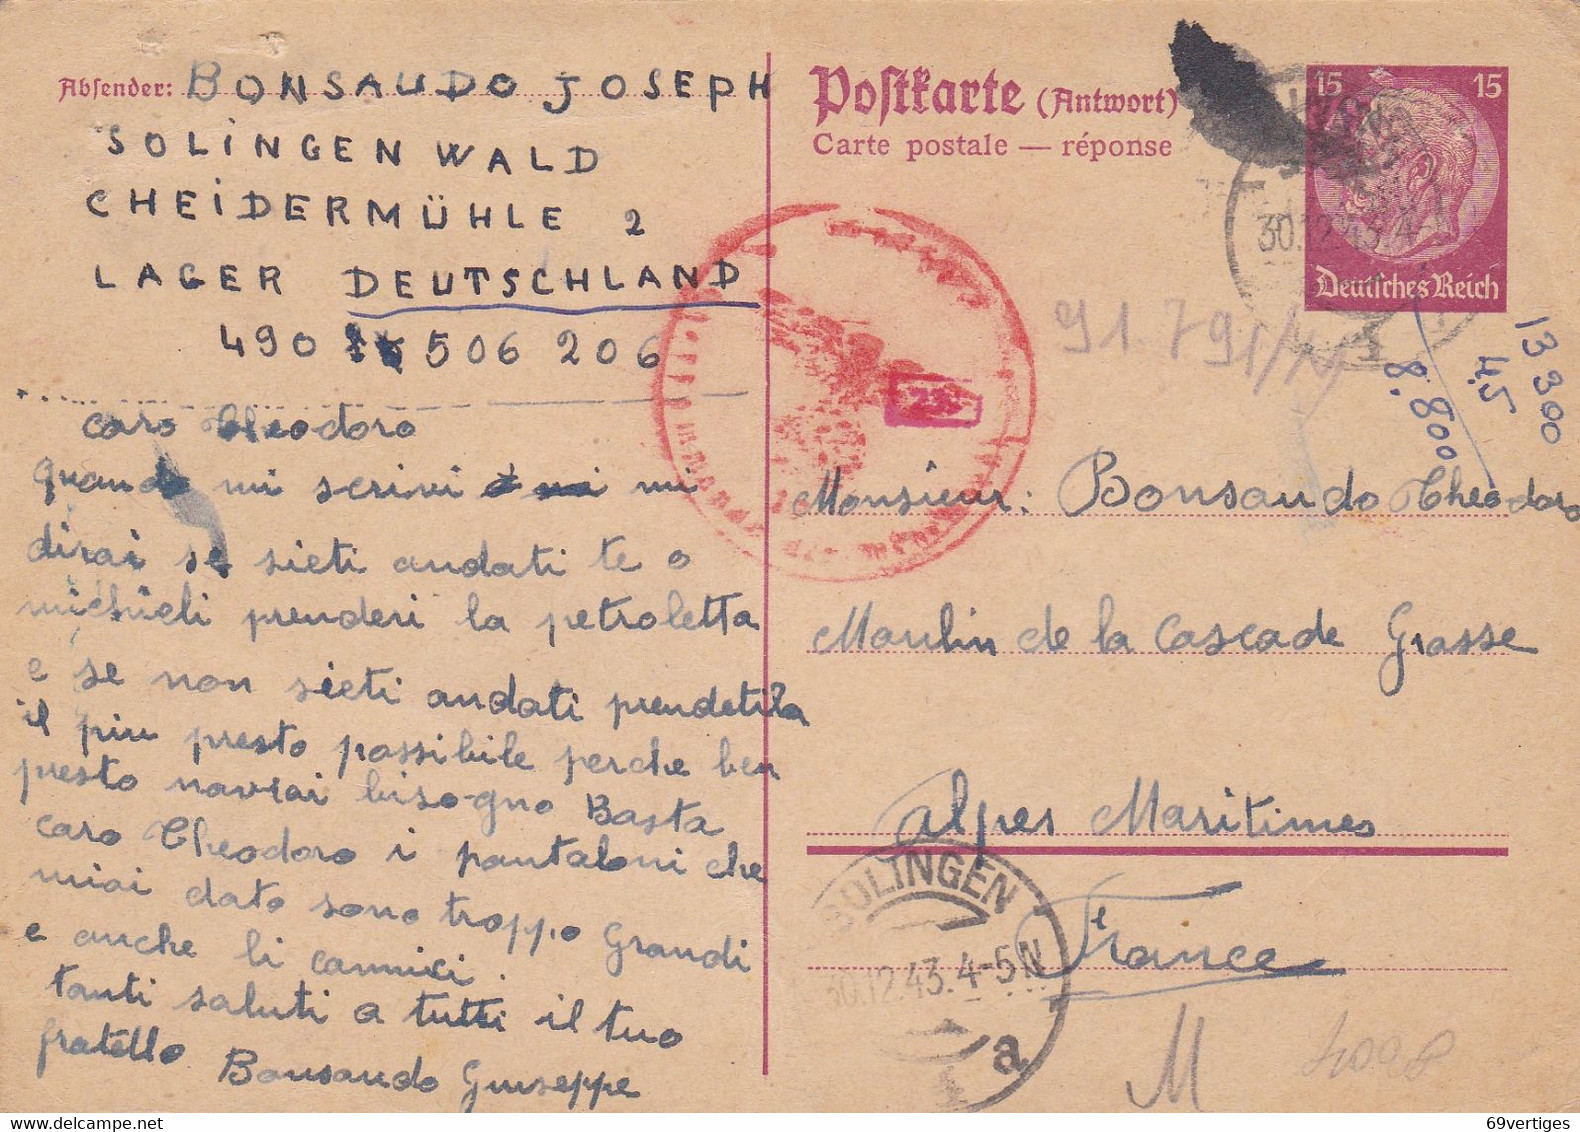 Absender: BONSAUDO JOSEPH
SOLINGEN WALD
CHEIDERMÜHLE 2
LAGER DEUTSCHLAND
490 506 206
caro Theodoro
quando mi scrivi mi
dirai se sieti andati te o
michieli prenderi la petroletta
e se non sieti andati prendetila
il piu presto possibile perche ben
presto navrai bisogno Basta
caro Theodoro i pantaloni che
miai dato sono troppo Grandi
e anche li cannici.
tanti saluti a tutti il tuo
fratello Bonsaudo Giuseppe
Postkarte (Antwort)
Carte postale — réponse
15 15
Deutsches Reich
30.12.43.4-
91.791/
13 300
4.5
8.800
Monsieur: Bonsaudo Theodoro
Moulin de la Cascade Grasse
Alpes Maritimes
France
SOLINGEN
30.12.43.4-5N
a
M
69vertiges